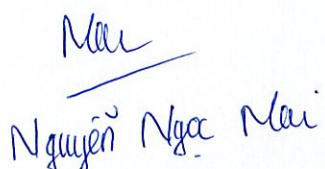 Mai
Nguyễn Ngọc Mai